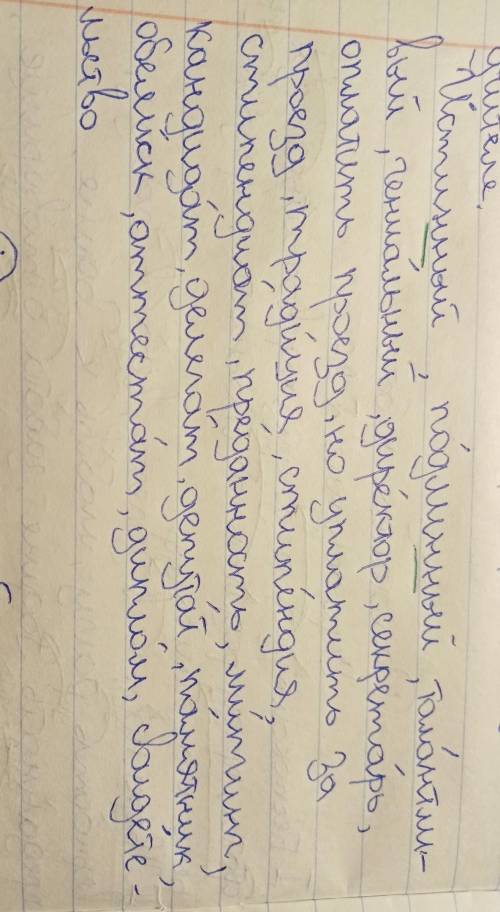 дителе.
-Истинный, подлинный, талантли-
вый, гениальный, директор, секретарь,
оплатить проезд, но уплатить за
проезд, традиция, стипендия,
стипендиат, преданность, митинг,
кандидат, делегат, депутат, памятник,
обелиск, аттестат, диплом,
льство